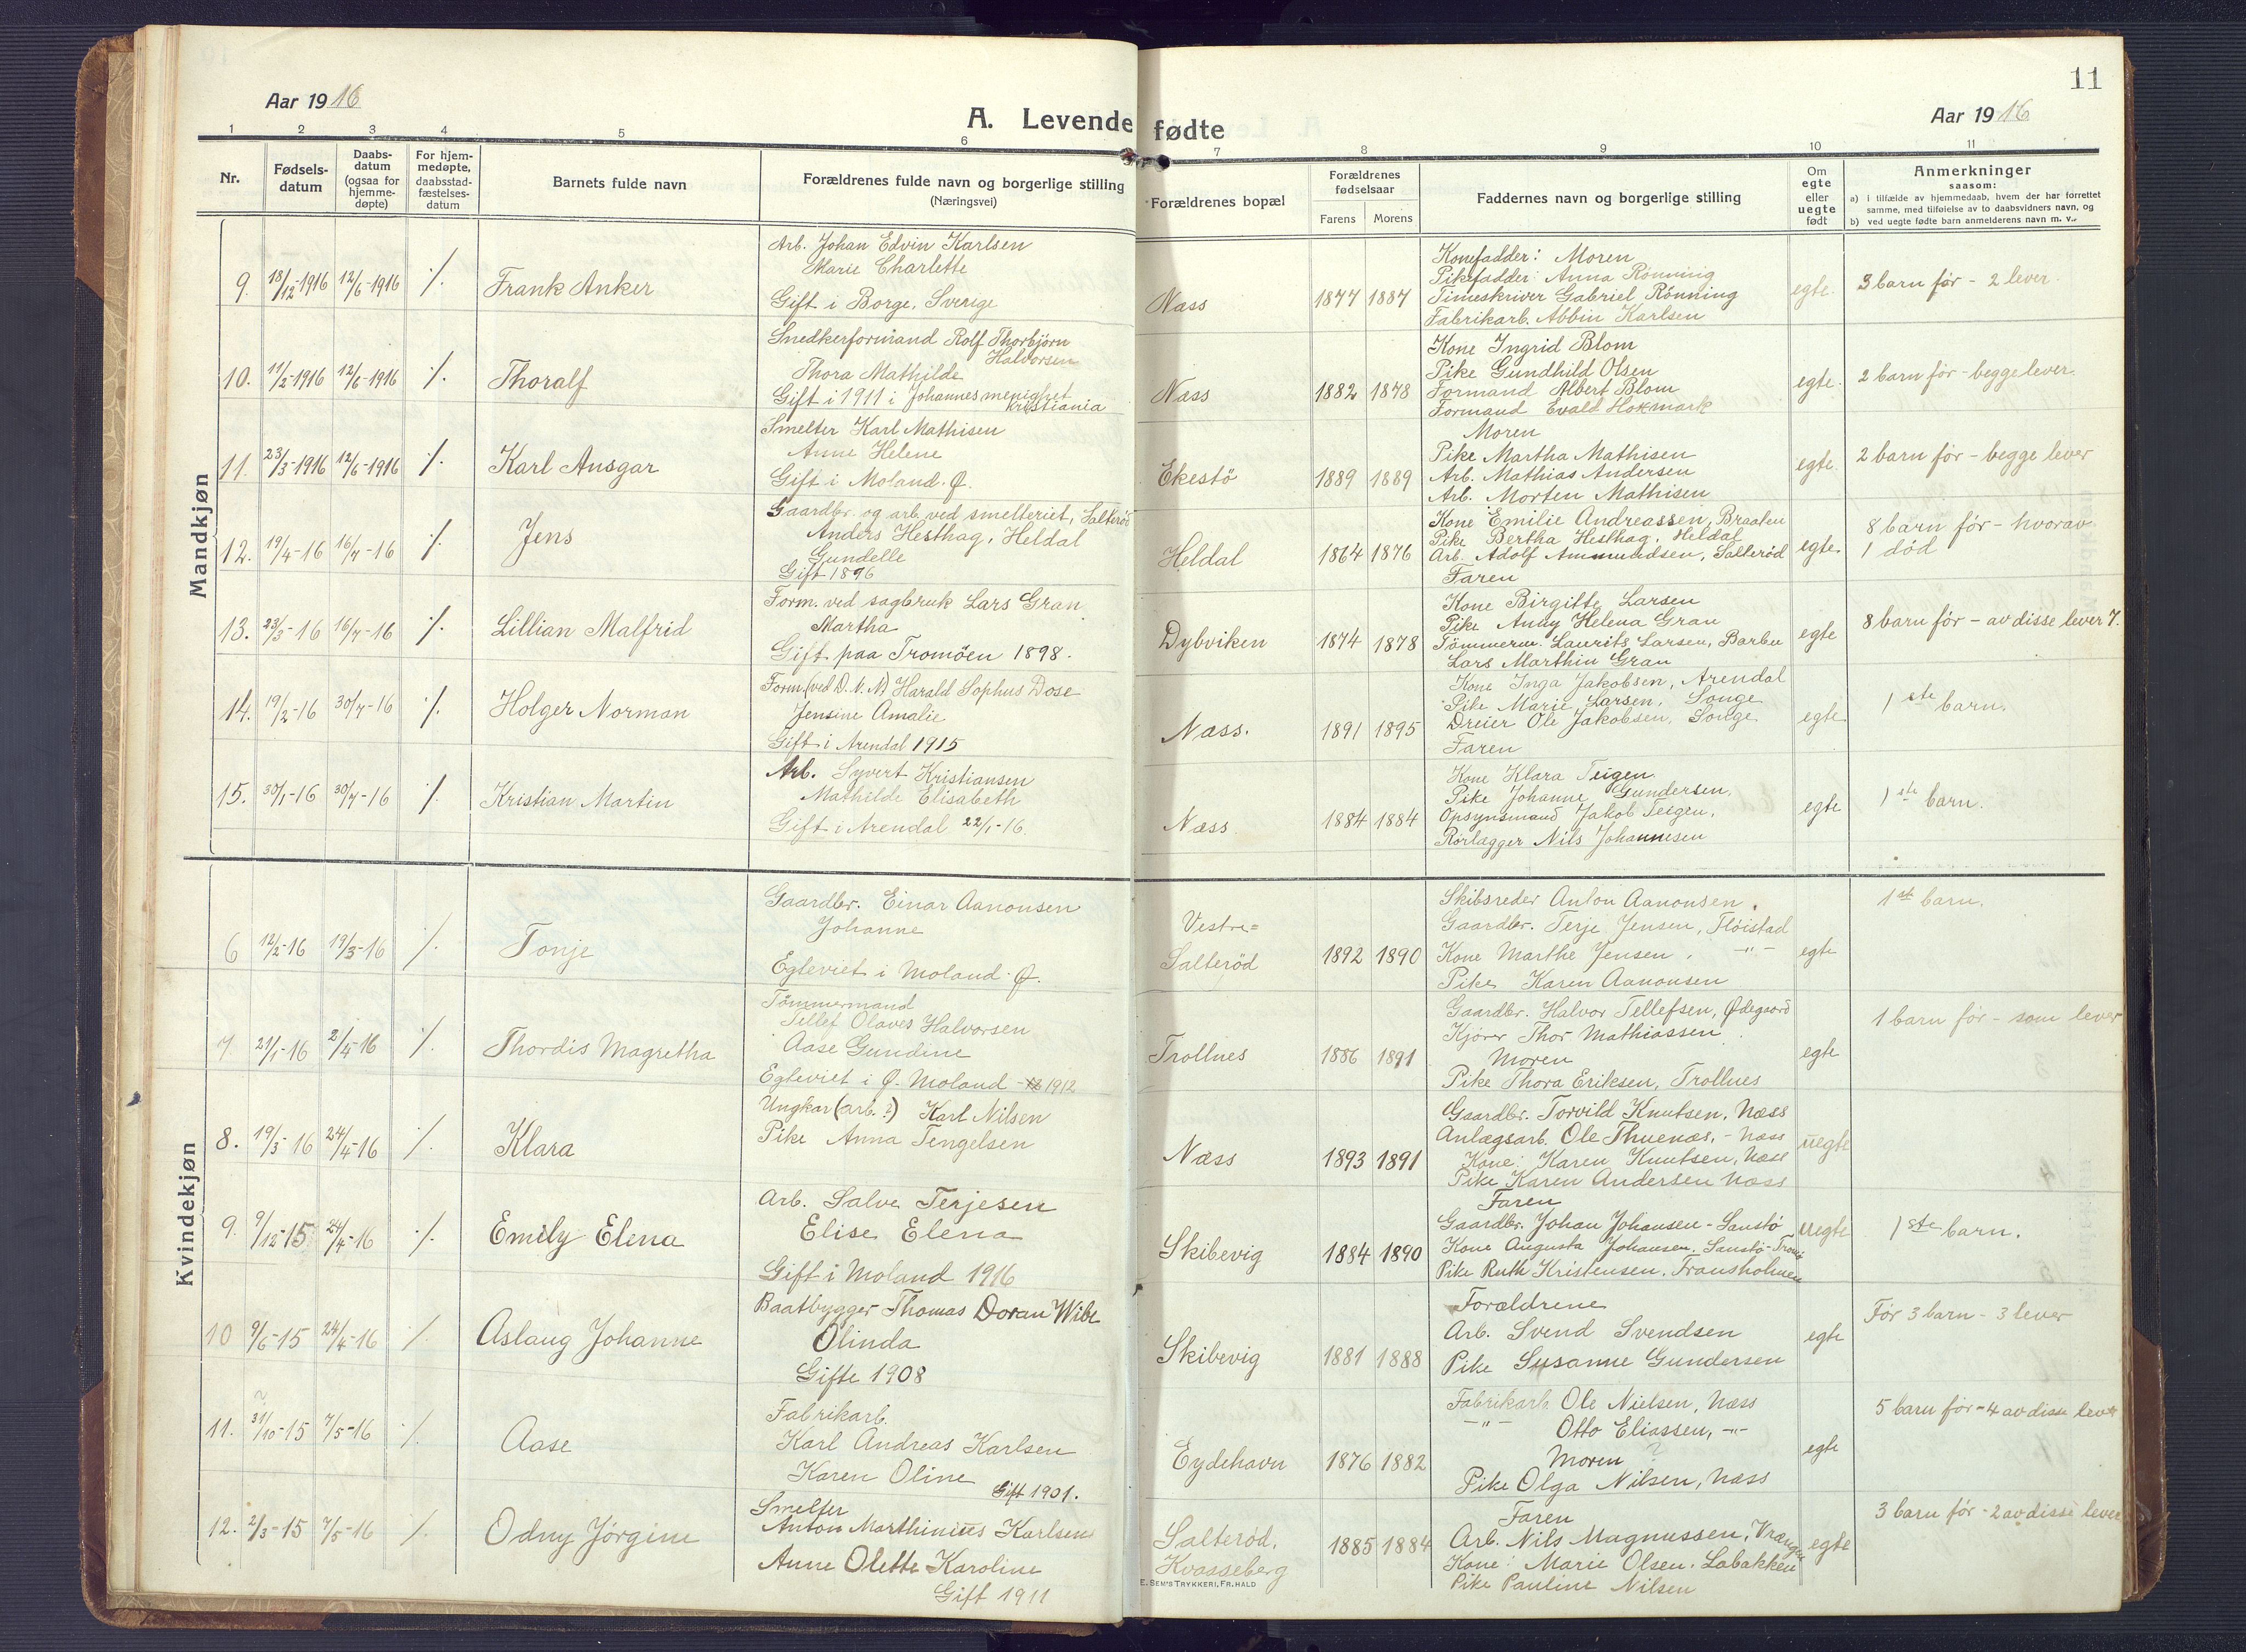 11
Aar 1916
Aar 1916
A. Levende fødte
1 2 3 4 5 6 7 8 9 10 11
Nr.
Fødsels-
datum
Daabs-
datum
(ogsaa for
hjemme-
døpte)
For hjem-
medøpte,
daabsstad-
fæstelses-
datum
Barnets fulde navn
Forældrenes fulde navn og borgerlige stilling
(Næringsvei)
Forældrenes bopæl
Forældrenes
fødselsaar
Farens Morens
Faddernes navn og borgerlige stilling
Om
egte
eller
uegte
født
Anmerkninger
saasom:
a) i tilfælde av hjemmedaab, hvem der har forrettet
samme, med tilføielse av to daabsvidners navn, og
b) ved uegte fødte barn anmelderens navn m. v.
Mandkjøn
9. 18/12-1916 12/6-1916 ./. Frank Anker
Arb. Johan Edvin Karlsen
Marie Charlette
Gift i Borge, Sverige
Næss 1877 1887
Konefadder: Moren
Pikefadder: Anna Rönning
Timeskriver Gabriel Rönning
Fabrikarb. Abbin Karlsen
egte. 3 barn før - 2 lever.
10. 11/2-1916 12/6-1916 ./. Thoralf
Snedkerformand Rolf Thorbjörn
Halvorsen
Thora Mathilde
Gift i 1911 i Johannes menighet
Kristiania
Næss 1882 1878
Kone Ingrid Blom
Pike Gundhild Olsen
Formand Albert Blom
Formand Evald Hokmark
egte. 2 barn før - begge lever.
11. 23/3-1916 12/6-1916 ./. Karl Ansgar
Smelter Karl Mathisen
Anne Helene
Gift i Moland. Ø.
Ekestö 1889 1889
Moren
Pike Martha Mathisen
Arb. Mathias Andersen
Arb. Morten Mathisen
egte. 2 barn før - begge lever
12. 19/4-16 16/7-16 ./. Jens
Gaardbr. og arb. ved smelteriet, Salteröd
Anders Hesthag, Heldal
Gundelle
Gift 1896
Heldal 1864 1876
Kone Emilie Andreassen, Braaten
Pike Bertha Hesthag, Heldal
Arb. Adolf Ammundsen, Salteröd
Faren
egte. 8 barn før - hvorav
1 död
13. 23/3-16 16/7-16 ./. Lillian Malfrid
Form. ved sagbruk Lars Gran
Martha
Gift paa Tromöen 1898.
Dybviken 1874 1878
Kone Birgitte Larsen
Pike Anny Helena Gran
Tömmerm. Laurits Larsen, Barbu
Lars Marthin Gran
egte 8 barn før - av disse lever 7.
14. 19/2-16 30/7-16 ./. Holger Norman
Form. (ved D. N. N) Harald Sophus Dose
Jensine Amalie
Gift i Arendal 1915
Næss. 1891 1895
Kone Inga Jakobsen, Arendal
Pike Marie Larsen, Songe
Dreier Ole Jakobsen, Songe
Faren
egte 1ste barn.
15. 30/1-16 30/7-16 ./. Kristian Martin
Arb. Syvert Kristiansen
Mathilde Elisabeth
Gift i Arendal 22/1-16.
Næss 1884 1884
Kone Klara Teigen
Pike Johanne Gundersen,
Opsynsmand Jakob Teigen,
Rörlægger Nils Johannesen
egte 1ste barn.
Kvindekjøn
6 12/2-16 19/3-16 ./. Tonje
Gaardbr. Einar Aanonsen
Johanne
Egteviet i Moland. Ø.
Vestre=
Salteröd 1892 1890
Skibsreder Anton Aanonsen.
Gaardbr. Terje Jensen, Flöistad
Kone Marthe Jensen, -"-
Pike Karen Aanonsen
egte 1st barn.
7 21/1-16 2/4-16 ./. Thordis Magretha
Tömmermand
Tellef Olaves Halvorsen
Aase Gundine
Egteviet i Ø. Moland - 1912
Trollnes 1886 1891
Gaardbr. Halvor Tellefsen, Ødegaard
Kjörer Thor Mathiassen
Moren
Pike Thora Eriksen, Trollnes
egte 1 barn før - som lever
8. 19/3-16 24/4-16 ./. Klara
Ungkar (arb.?) Karl Nilsen
Pike Anna Tengelsen
Næss 1893 1891
Gaardbr. Torvild Knutsen, Næss
Anlægsarb. Ole Thuenæs, - Næss
Kone: Karen Knutsen, Næss
Pike Karen Andersen Næss
uegte
9. 9/12-15 24/4-16 ./. Emily Elena
Arb. Salve Terjesen
Elise Elena
Gift i Moland 1916
Skibevig 1884 1890
Faren
Gaardbr. Johan Johansen - Sanstö
Kone Augusta Johansen, Sanstö-Tromö
Pike Ruth Kristensen, Fransholmen
uegte 1ste barn.
10 9/6-15 24/4-16 ./. Aslaug Johanne
Baatbygger Thomas Doran Wibe
Olinda
Gifte 1908
Skibevig 1881 1888
Forældrene
Arb. Svend Svendsen
Pike Susanne Gundersen
egte Før 3 barn - 3 lever
11. 31/10-15 7/5-16 ./. Aase
Fabrikarb.
Karl Andreas Karlsen
Karen Oline
Gift 1901.
Eydehavn 1876 1882
Fabrikarb. Ole Nielsen, Næss
-"- Otto Eliassen, -"-
Moren ?
Pike Olga Nilsen, Næss
egte 5 barn før - 4 av disse lever
12. 2/3-15 7/5-16 ./. Odny Jörgine
Smelter
Anton Marthinius Karlsen
Anne Olette Karoline
Gift 1911
Salteröd,
Kvasseberg 1885 1884
Faren
Arb. Nils Magnussen, Vrængen
Kone: Marie Olsen, Labakken
Pike Pauline Nilsen
egte 3 barn før - 2 av disse lever
E. SEM'S TRYKKERI, FR.HALD